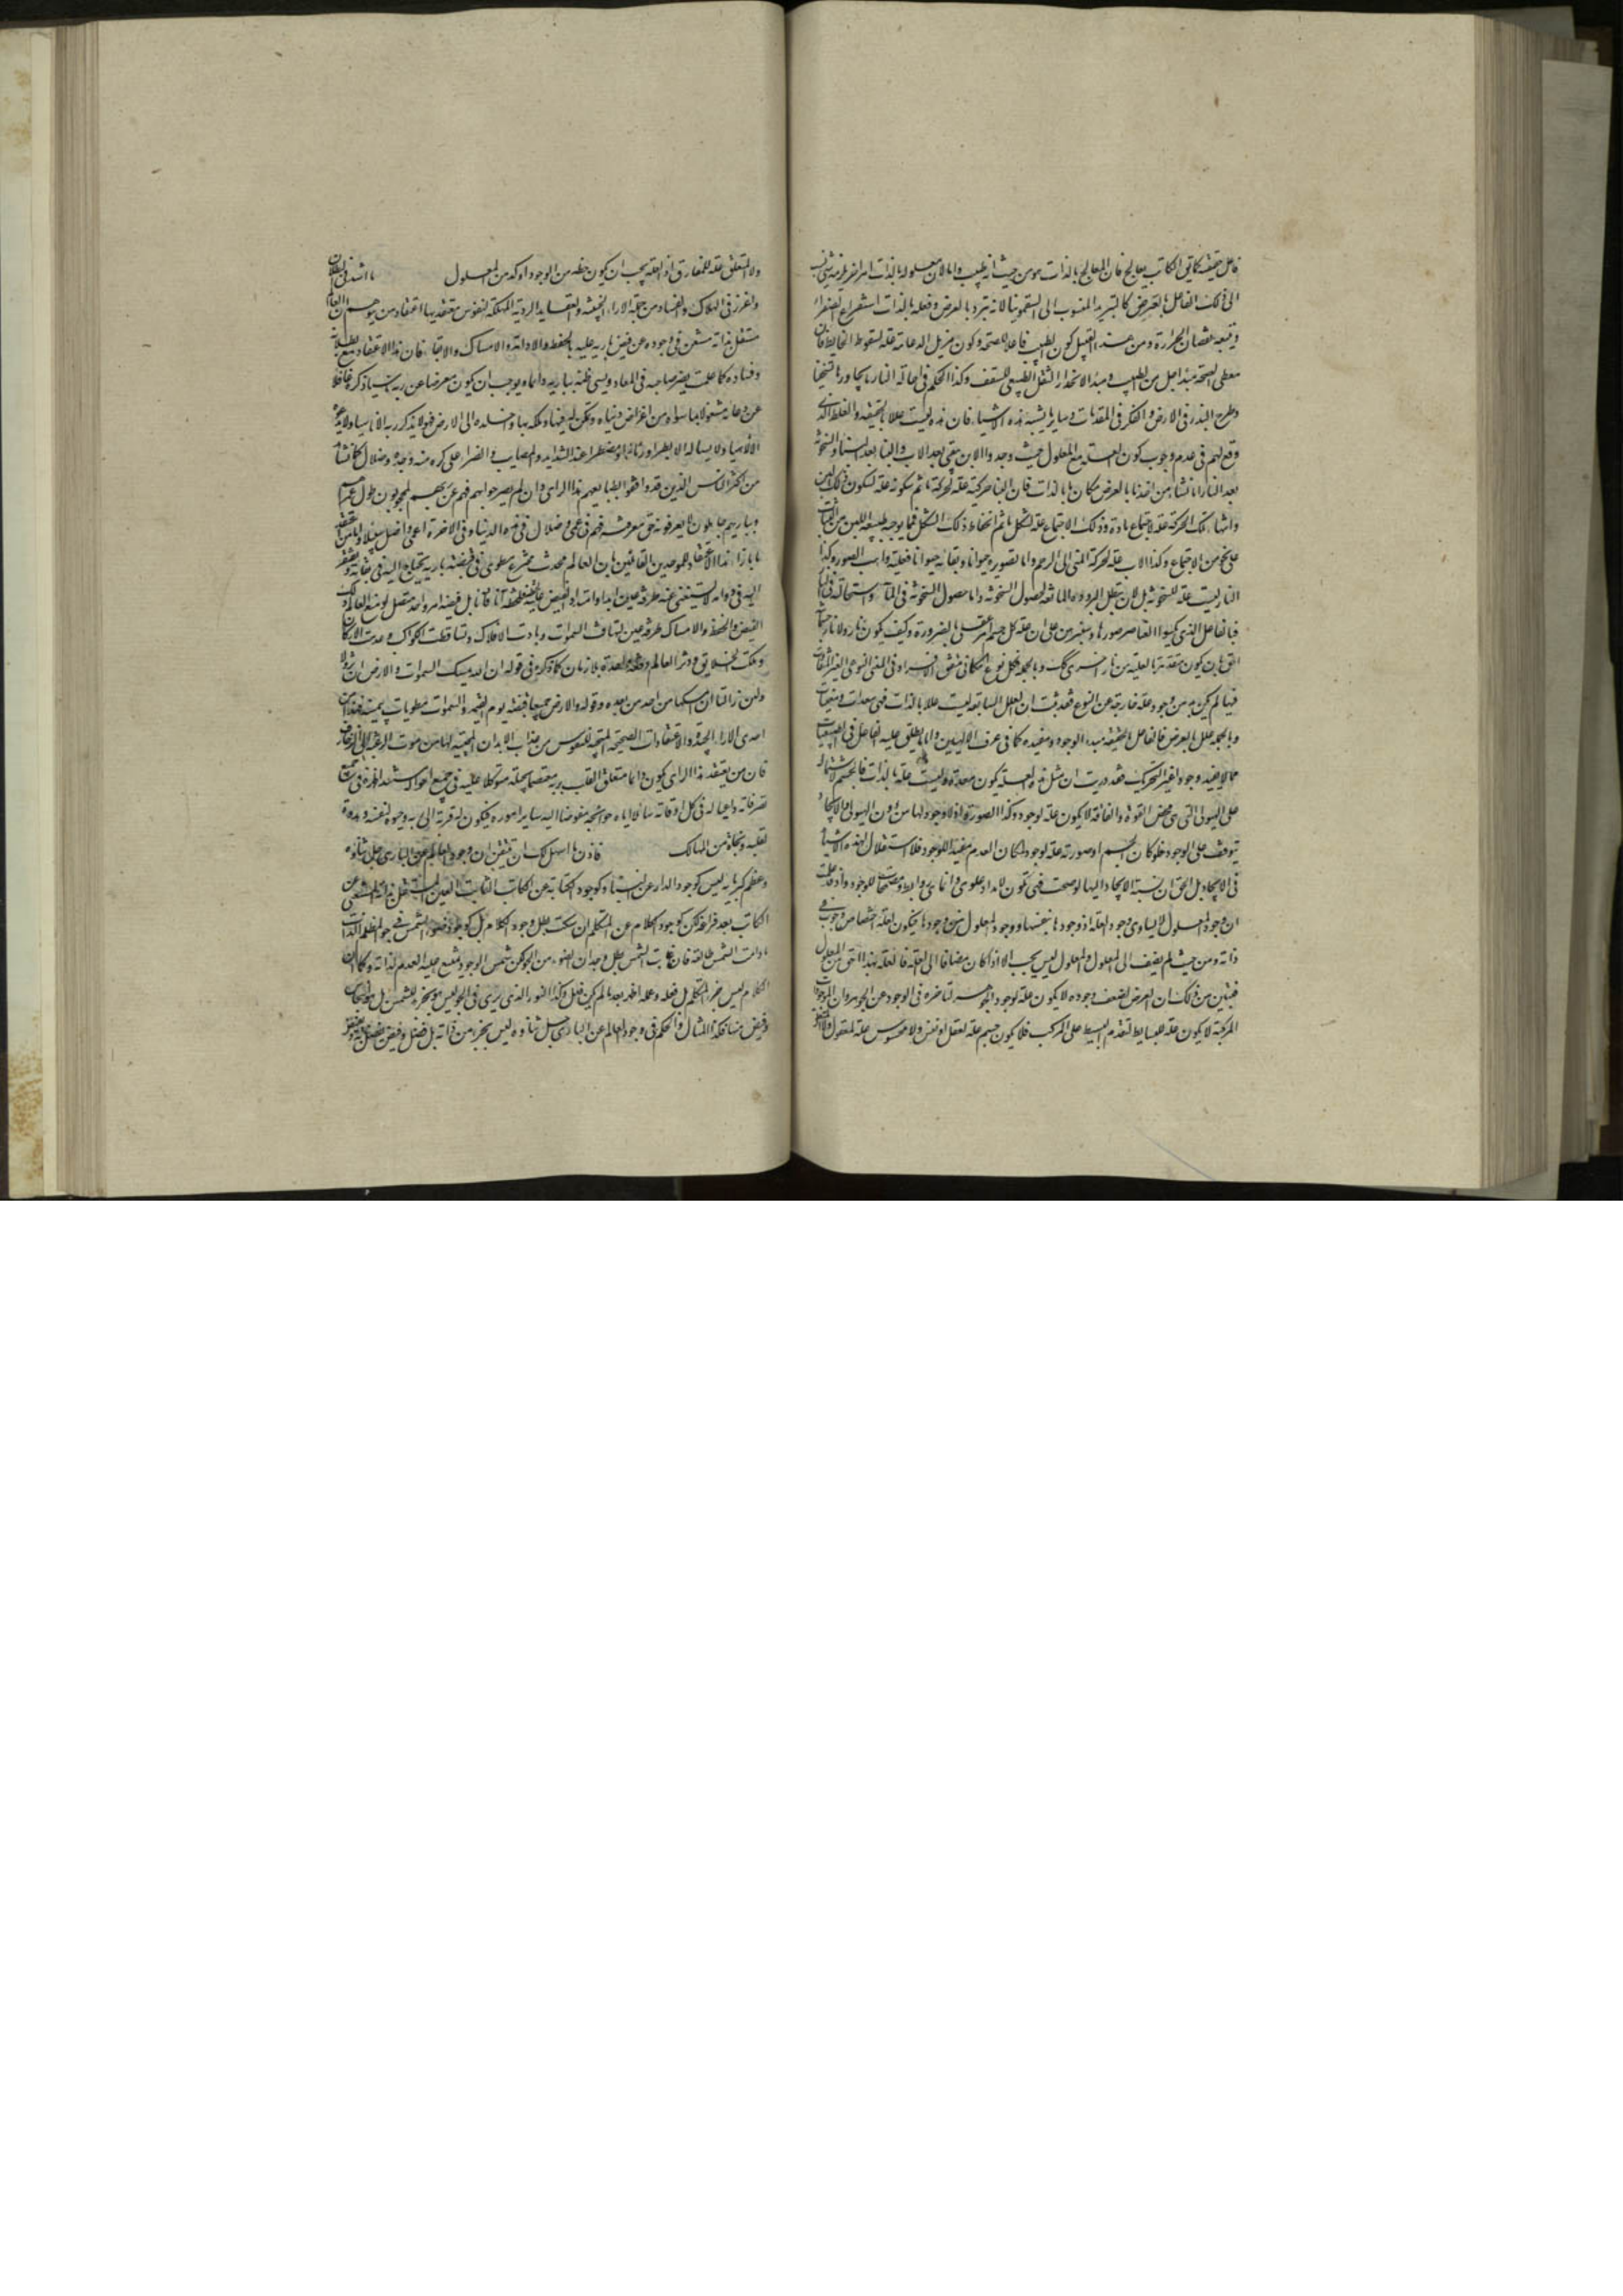 فاعل حقيقة كما في الكاتب يعالج فان المعالج بالذات هو من حيث انه طبيب واما لان معلوله بالذات امر اخر
الى ذلك الفاعل بالعرض كالتبريد المنسوب الى السقمونيا لانه تبرد بالعرض وفعله بالذات استفراغ الصفراء
ويتبعه نقصان الحرارة ومن هذا القبيل كون الطبيب فاعلا للصحة وكون مزيل الدعامة علة لسقوط الحايط فان
معطى الصحة مبدا اجل من الطبيب ومبدا الانحدار الثقل الطبيعي للسقف وكذا الحكم في احالة النار ما يجاورها
وطرح البذر في الارض والفكر في المقدمات وساير ما يشبه هذه الاشياء فان هذه ليست عللا بالحقيقة والغلط الذى
وقع لهم في عدم وجوب كون العلة مع المعلول حيث وجدوا الابن يبقى بعد الاب والبنا بعد البناء والسخونة
بعد النار انما نشا من اخذ ما بالعرض مكان ما بالذات فان البنا حركته علة لحركة ما ثم سكونه علة لسكون
وانتهاء تلك الحركة علة لاجتماع مادة وذلك الاجتماع علة لشكل ما ثم انحفاظ ذلك الشكل فيما يوجبه طبيعة اللبن من الثبات
على نحو من الاجتماع وكذا الاب علة لحركة المنى الى الرحم واما تصويره حيوانا وبقائه حيوانا فعليته واهب الصور وكذا
النار ليست علة للسخونة بل لان تبطل البرودة المانعة لحصول السخونة واما حصول السخونة في الماء واستحالته
فبالفاعل الذي يكسو العناصر صورها وسنبرهن على ان علة كل جسم امر عقلى بالضرورة وكيف يكون نار ولا نار
احق بان يكون متقدمة بالعلية من نار اخرى كك وبالجملة فكل نوع امكاني متفق الافراد في المعنى النوعي
فيها لم يكن بد من وجود علة خارجة عن النوع فقد ثبت ان العلل السابقة ليست عللا بالذات فهى معدات ومعينات
وبالجملة علل بالعرض فالفاعل بالحقيقة مبدا الوجود ومفيده كما في عرف الالهيين واما ما يطلق عليه الفاعل في الطبيعيات
مما لا يفيد وجودا غير التحريك فقد دريت ان مثل هذه العلة يكون معدة وليست علة بالذات فالجسم لاشتماله
على الهيولى التى هى محض القوة والفاقة لا يكون علة لوجود وكذا الصورة اذ لا وجود لها من دون الهيولى والايجاد
يتوقف على الوجود فلو كان الجسم او صورته علة لوجود لكان العدم مفيدا للوجود فلا استقلال لهذه الاشياء
في الايجاد بل الحق ان نسبة الايجاد اليها لو صحت فهى تكون لامداد علوى وانما هى روابط ومصححات للوجود واذ قد علمت
ان وجود المعلول لا يساوى وجود العلة اذ وجودها بنفسها ووجود المعلول من وجودها فيكون للعلة اختصاص وجوب في
ذاته ومن حيث لم يضف الى المعلول والمعلول ليس يجب الا اذا كان مضافا الى العلة فالعلة بهذا احق من المعلول
فتبين من ذلك ان العرض لضعف وجوده لا يكون علة لوجود الجوهر لتاخره في الوجود عن الجوهر وان الموجودات
المركبة لا يكون علة للبسايط لتقدم البسيط على المركب فلا يكون جسم علة لعقل او نفس ولا محسوس علة لمعقول
ولا المتعلق علة للمفارق اذ العلة يجب ان يكون حظه من الوجود اوكد من المعلول ما اشد في البطلان
واغرز في الهلاك والفساد من جملة الاراء الخبيثة والعقايد الردية المهلكة لنفوس معتقديها اعتقاد من يتوهم ان العالم
مستقل بذاته مستغن في وجوده عن فيض باريه عليه بالحفظ والادامة والامساك والابقاء فان هذا الاعتقاد مع بطلانه
وفساده كما علمت يضر صاحبه في المعاد ويسى ظنه بباريه دائما ويوجب ان يكون معرضا عن ربه ناسيا ذكره غافلا
عن دعائه مشغولا بما سواه من اغراض دنياه وتمكن له فيها وملكه بها واخلده الى الارض فهو لا يذكر ربه الا ناسيا ولا يدعو
الا لاهيا ولا يساله الا بطرا ورئاء او مضطرا عند الشدايد والمصايب والضراء على كره منه وجد وضلال كما نشاهد
من اكثر الناس الذين قد وافقوا لطبايعهم هذا الراى وان لم يصرحوا بهم فهم عن ربهم لمحجوبون طول عمرهم
وبباريهم جاهلون لا يعرفونه حق معرفته فهم في عمى وضلال في هذه الدنيا وفي الاخرة اعمى واضل سبيلا
ما بازاء هذا الاعتقاد للموحدين القائلين بان العالم محدث مخترع مطوى في قبضة باريه يحتاج اليه في بقائه ويفتقر
اليه في دوامه لا يستغنى عنه طرفة عين ابدا وامتداد الفيض عليه لحظة فلحظة آنا فآنا بل فيضه امر واحد متصل لو منع العالم ذلك
الفيض والحفظ والامساك طرفة عين لتهافت السموات وبادت الافلاك وتساقطت الكواكب وعدمت الاركان
وهلكت الخلايق ودثر العالم دفعة واحدة بلا زمان كما ذكره في قوله ان الله يمسك السموات والارض ان تزولا
ولئن زالتا ان امسكهما من احد من بعده وقوله والارض جميعا قبضته يوم القيمة والسموات مطويات بيمينه
احدى الاراء الجيدة والاعتقادات الصحيحة المنجية للنفوس من عذاب الابدان المحيية لها من موت
فان من يعتقد هذا الراى يكون دائما متعلق القلب بربه معتصما بحبله متوكلا عليه في جميع احواله مستندا اليه في جميع
تصرفاته داعيا له في كل اوقاته سائلا اياه حوائجه مفوضا اليه ساير اموره فيكون له قربة الى ربه وحيوة لنفسه وهدوء
لقلبه ونجاة من المهالك فاذن ما اسهل لك ان تتيقن ان وجود العالم عن البارى جل ثناؤه
وعظم كبرياؤه ليس كوجود الدار عن البناء وكوجود الكتابة عن الكاتب الثابت العين المستقل بذاته المستغنى عن
الكاتب بعد فراغه لكن كوجود الكلام عن المتكلم ان سكت بطل وجود الكلام بل كوجود ضوء الشمس في جو المظلم الذات
ما دامت الشمس طالعة فان غابت الشمس بطل وجدان الضوء من الجو لكن شمس الوجود يمتنع عليه العدم لذاته وكما ان
الكلام ليس جزء المتكلم بل فعله وعمله اظهره بعد ما لم يكن فعل وكذا النور الذى يرى في الجو ليس هو بجزء للشمس بل هو انبجاس
وفيض منها فهكذا المثال والحكم في وجود العالم عن البارى جل ثناؤه ليس بجزء من ذاته بل فضل وفيض